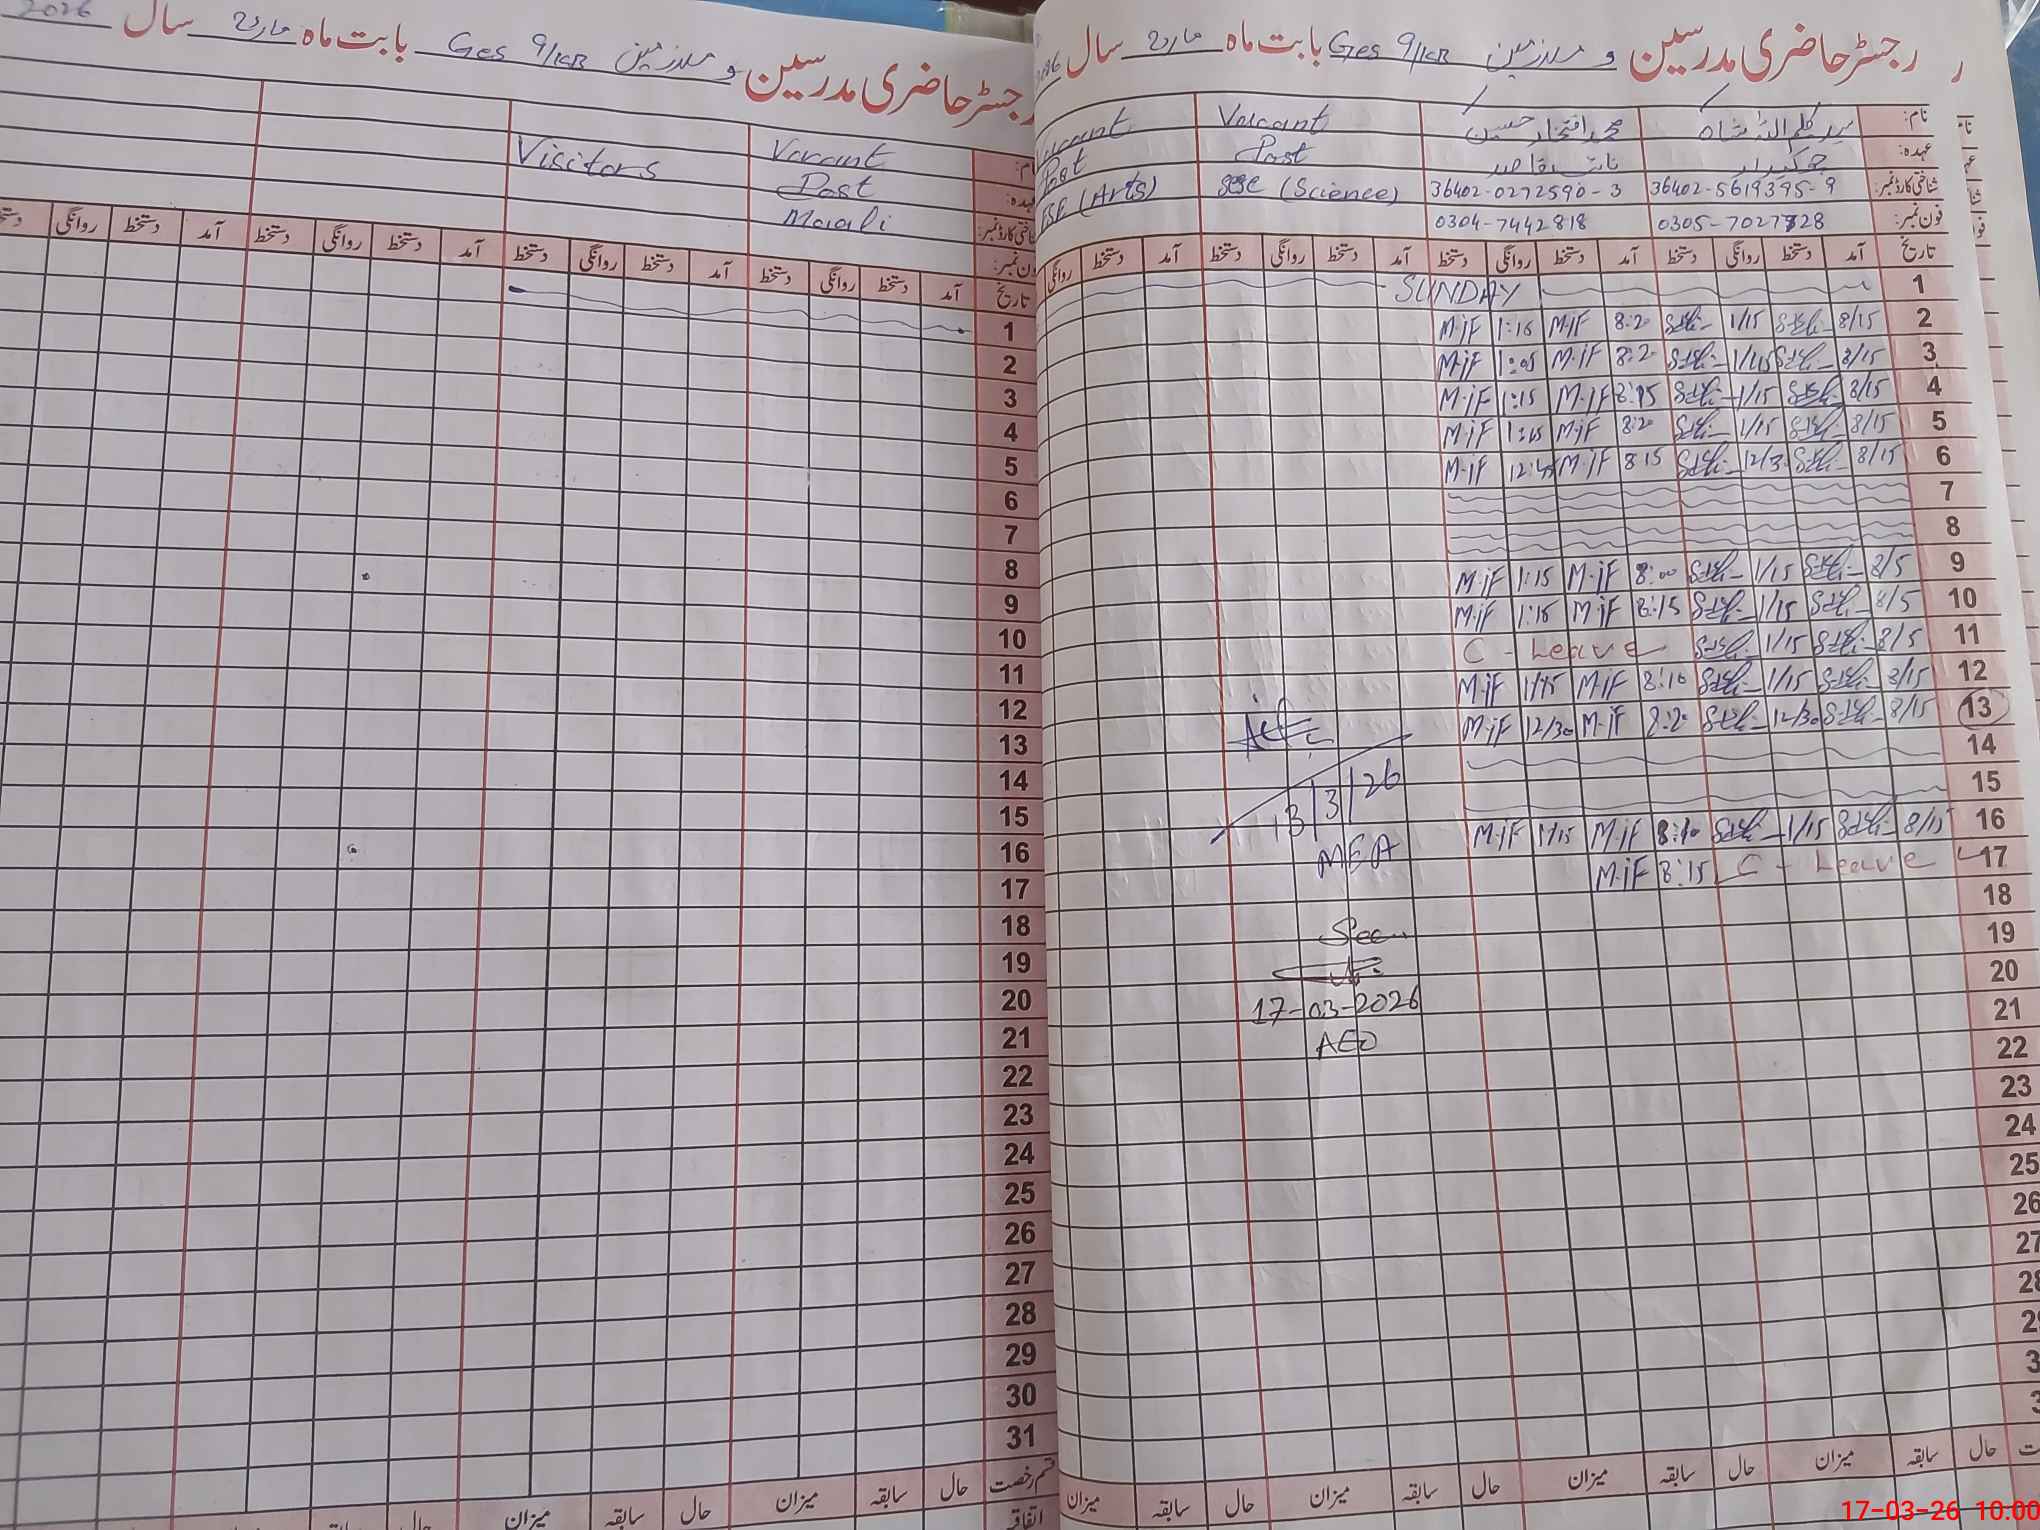 رجسٹر حاضری مدرسین و ملازمین Ges 9/1CR بابت ماہ مارچ سال 2026
نام: سید کلیم اللہ شاہ محمد افتخار حسین Vacant Vacant
عہدہ: چوکیدار نائب قاصد Post Post
شناختی کارڈ نمبر: 36402-5619395-9 36402-0272590-3 SESE (Science) ESE (Arts)
فون نمبر: 0305-7027828 0304-7442818
تاریخ آمد دستخط روانگی دستخط آمد دستخط روانگی دستخط آمد دستخط روانگی دستخط آمد دستخط روانگی
1 SUNDAY
2 8/15 1/15 8:20 M.iF 1:16 M.iF
3 8/15 1/15 8:2 M.iF 1:05 M.iF
4 8/15 1/15 8:15 M.iF 1:15 M.iF
5 8/15 1/15 8:20 M.iF 1:15 M.iF
6 8/15 12/3 8 15 M.iF 12:30 M.iF
7
8
9 8/5 1/15 8:00 M.iF 1:15 M.iF
10 8/5 1/15 8:15 M.iF 1:15 M.iF
11 8/5 1/15 C - Leave
12 8/15 1/15 8:10 M.iF 1/15 M.iF
13 8/15 12/30 8:20 M.iF 12/30 M.iF
14
15
16 8/15 1/15 8:10 M.iF 1/15 M.iF
17 C - Leave 8:15 M.iF
13/3/26
MEA
Seen
17-03-2026
AEO
18
19
20
21
22
23
24
25
26
27
28
حال سابقہ میزان حال سابقہ میزان حال سابقہ میزان حال سابقہ میزان
رجسٹر حاضری مدرسین و ملازمین Ges 9/1CR بابت ماہ مارچ سال 2026
نام: Vacant Visitors
عہدہ: Post
شناختی کارڈ نمبر: Maali
فون نمبر:
تاریخ آمد دستخط روانگی دستخط آمد دستخط روانگی دستخط آمد دستخط روانگی دستخط آمد دستخط روانگی
1
2
3
4
5
6
7
8
9
10
11
12
13
14
15
16
17
18
19
20
21
22
23
24
25
26
27
28
29
30
31
قسم رخصت حال سابقہ میزان حال سابقہ میزان حال
اتفاقیہ
17-03-26 10:00